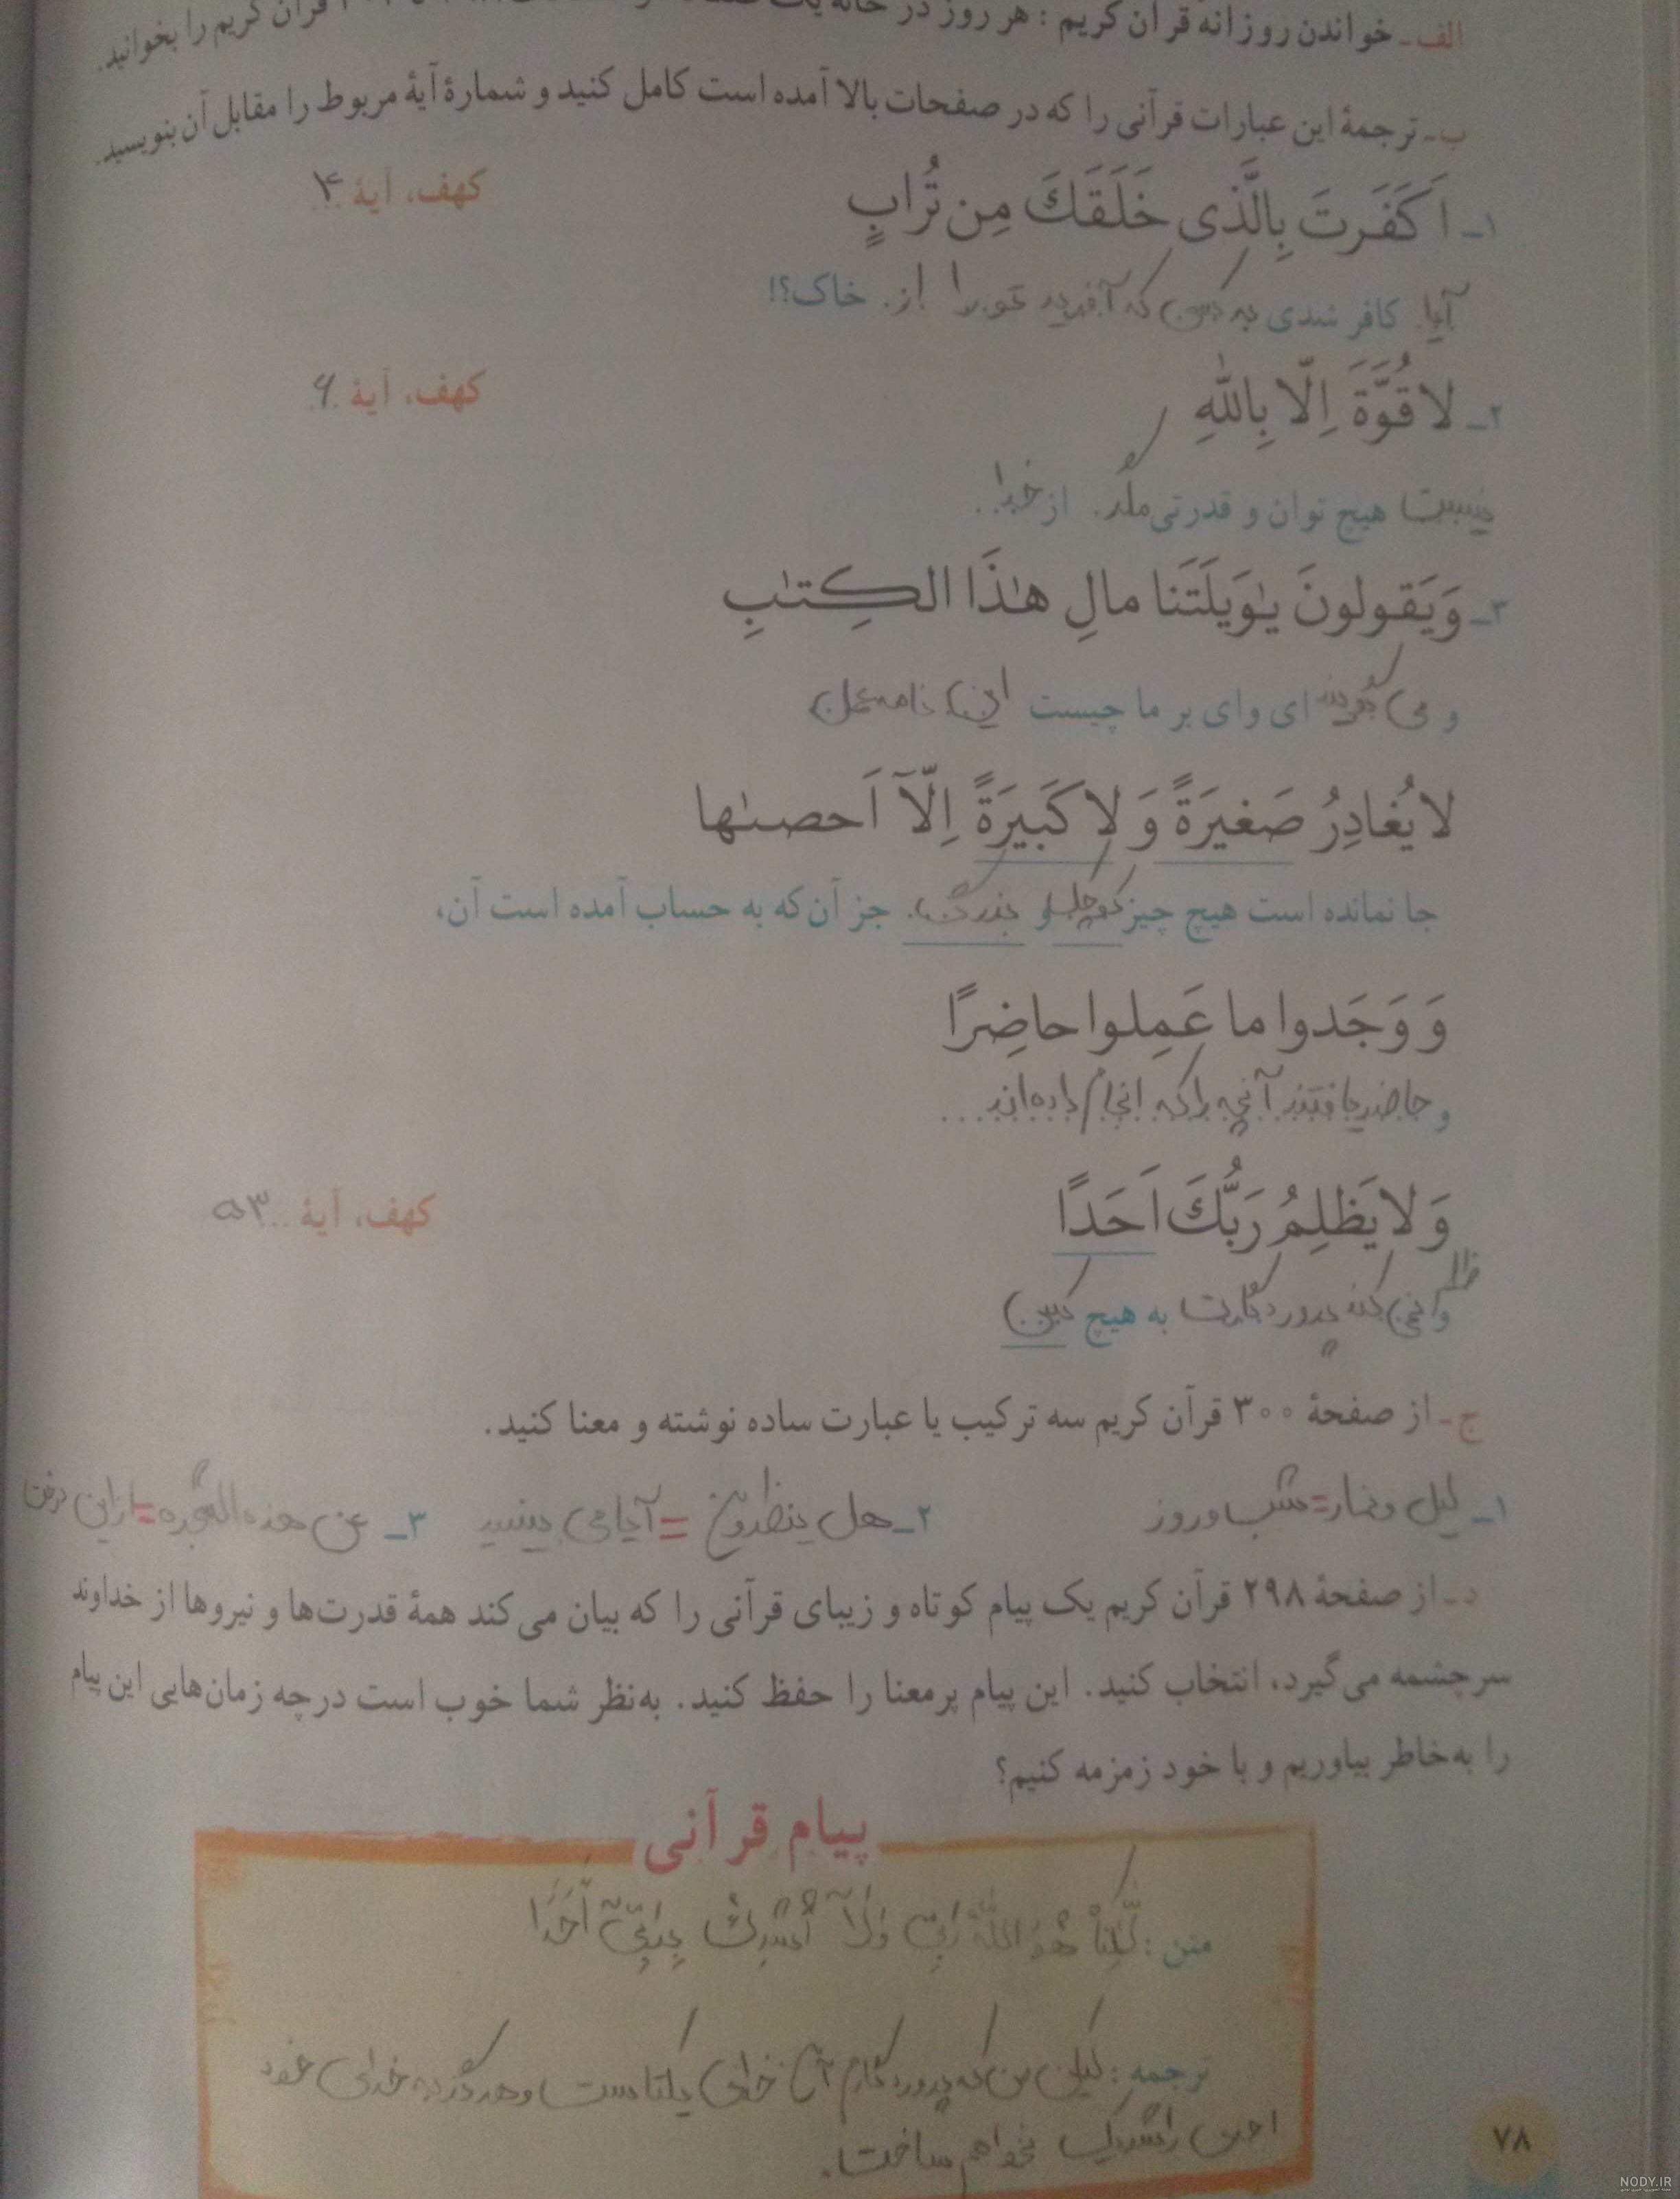 الف ـ خواندن روزانه قرآن کریم : هر روز در خانه یک قرآن کریم را بخوانید.
ب ـ ترجمهٔ این عبارات قرآنی را که در صفحات بالا آمده است کامل کنید و شمارهٔ آیهٔ مربوط را مقابل آن بنویسید.
۱ـ اَکَفَرتَ بِالَّذی خَلَقَكَ مِن تُرابٍ کهف، آیهٔ ۴
آیا کافر شدی به کسی که آفرید تو را از خاک؟!
۲ـ لا قُوَّةَ اِلّا بِاللّٰهِ کهف، آیهٔ ۶
نیست هیچ توان و قدرتی مگر از خدا
۳ـ وَ یَقولونَ یٰوَیلَتَنا مالِ هٰذَا الکِتٰبِ
و می گویند ای وای بر ما چیست این نامه عمل
لا یُغادِرُ صَغیرَةً وَ لا کَبیرَةً اِلّآ اَحصىٰها
جا نمانده است هیچ چیز کوچک و بزرگی جز آن که به حساب آمده است آن،
وَ وَجَدوا ما عَمِلوا حاضِرًا
و حاضر یافتند آنچه را که انجام داده اند
وَ لا یَظلِمُ رَبُّكَ اَحَدًا کهف، آیهٔ ۵۳
و ظلم نمی کند پروردگارت به هیچ کس
ج ـ از صفحهٔ ۳۰۰ قرآن کریم سه ترکیب یا عبارت ساده نوشته و معنا کنید.
۱ـ لیل و نهار = شب و روز ۲ـ هل ینظرون = آیا می بینید ۳ـ عن هذه الشجره = از این درخت
د ـ از صفحهٔ ۲۹۸ قرآن کریم یک پیام کوتاه و زیبای قرآنی را که بیان می کند همهٔ قدرت‌ها و نیروها از خداوند
سرچشمه می‌گیرد، انتخاب کنید. این پیام پرمعنا را حفظ کنید. به‌نظر شما خوب است در چه زمان‌هایی این پیام
را به‌خاطر بیاوریم و با خود زمزمه کنیم؟
پیام قرآنی
متن : لٰکِنَّا هُوَ اللّٰهُ رَبِّی وَلَآ أُشْرِكُ بِرَبِّیٓ أَحَدًا
ترجمه : لیکن من که پروردگارم آن خدای یکتاست و هرگز به خدای خود
احدی را شریک نخواهم ساخت.
۷۸
NODY.IR